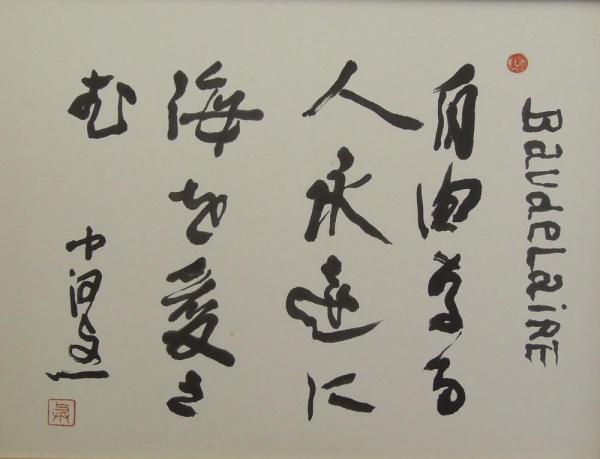 BaudeLaiRE
自由なる
人永遠に
海を愛さ
む
中河与一